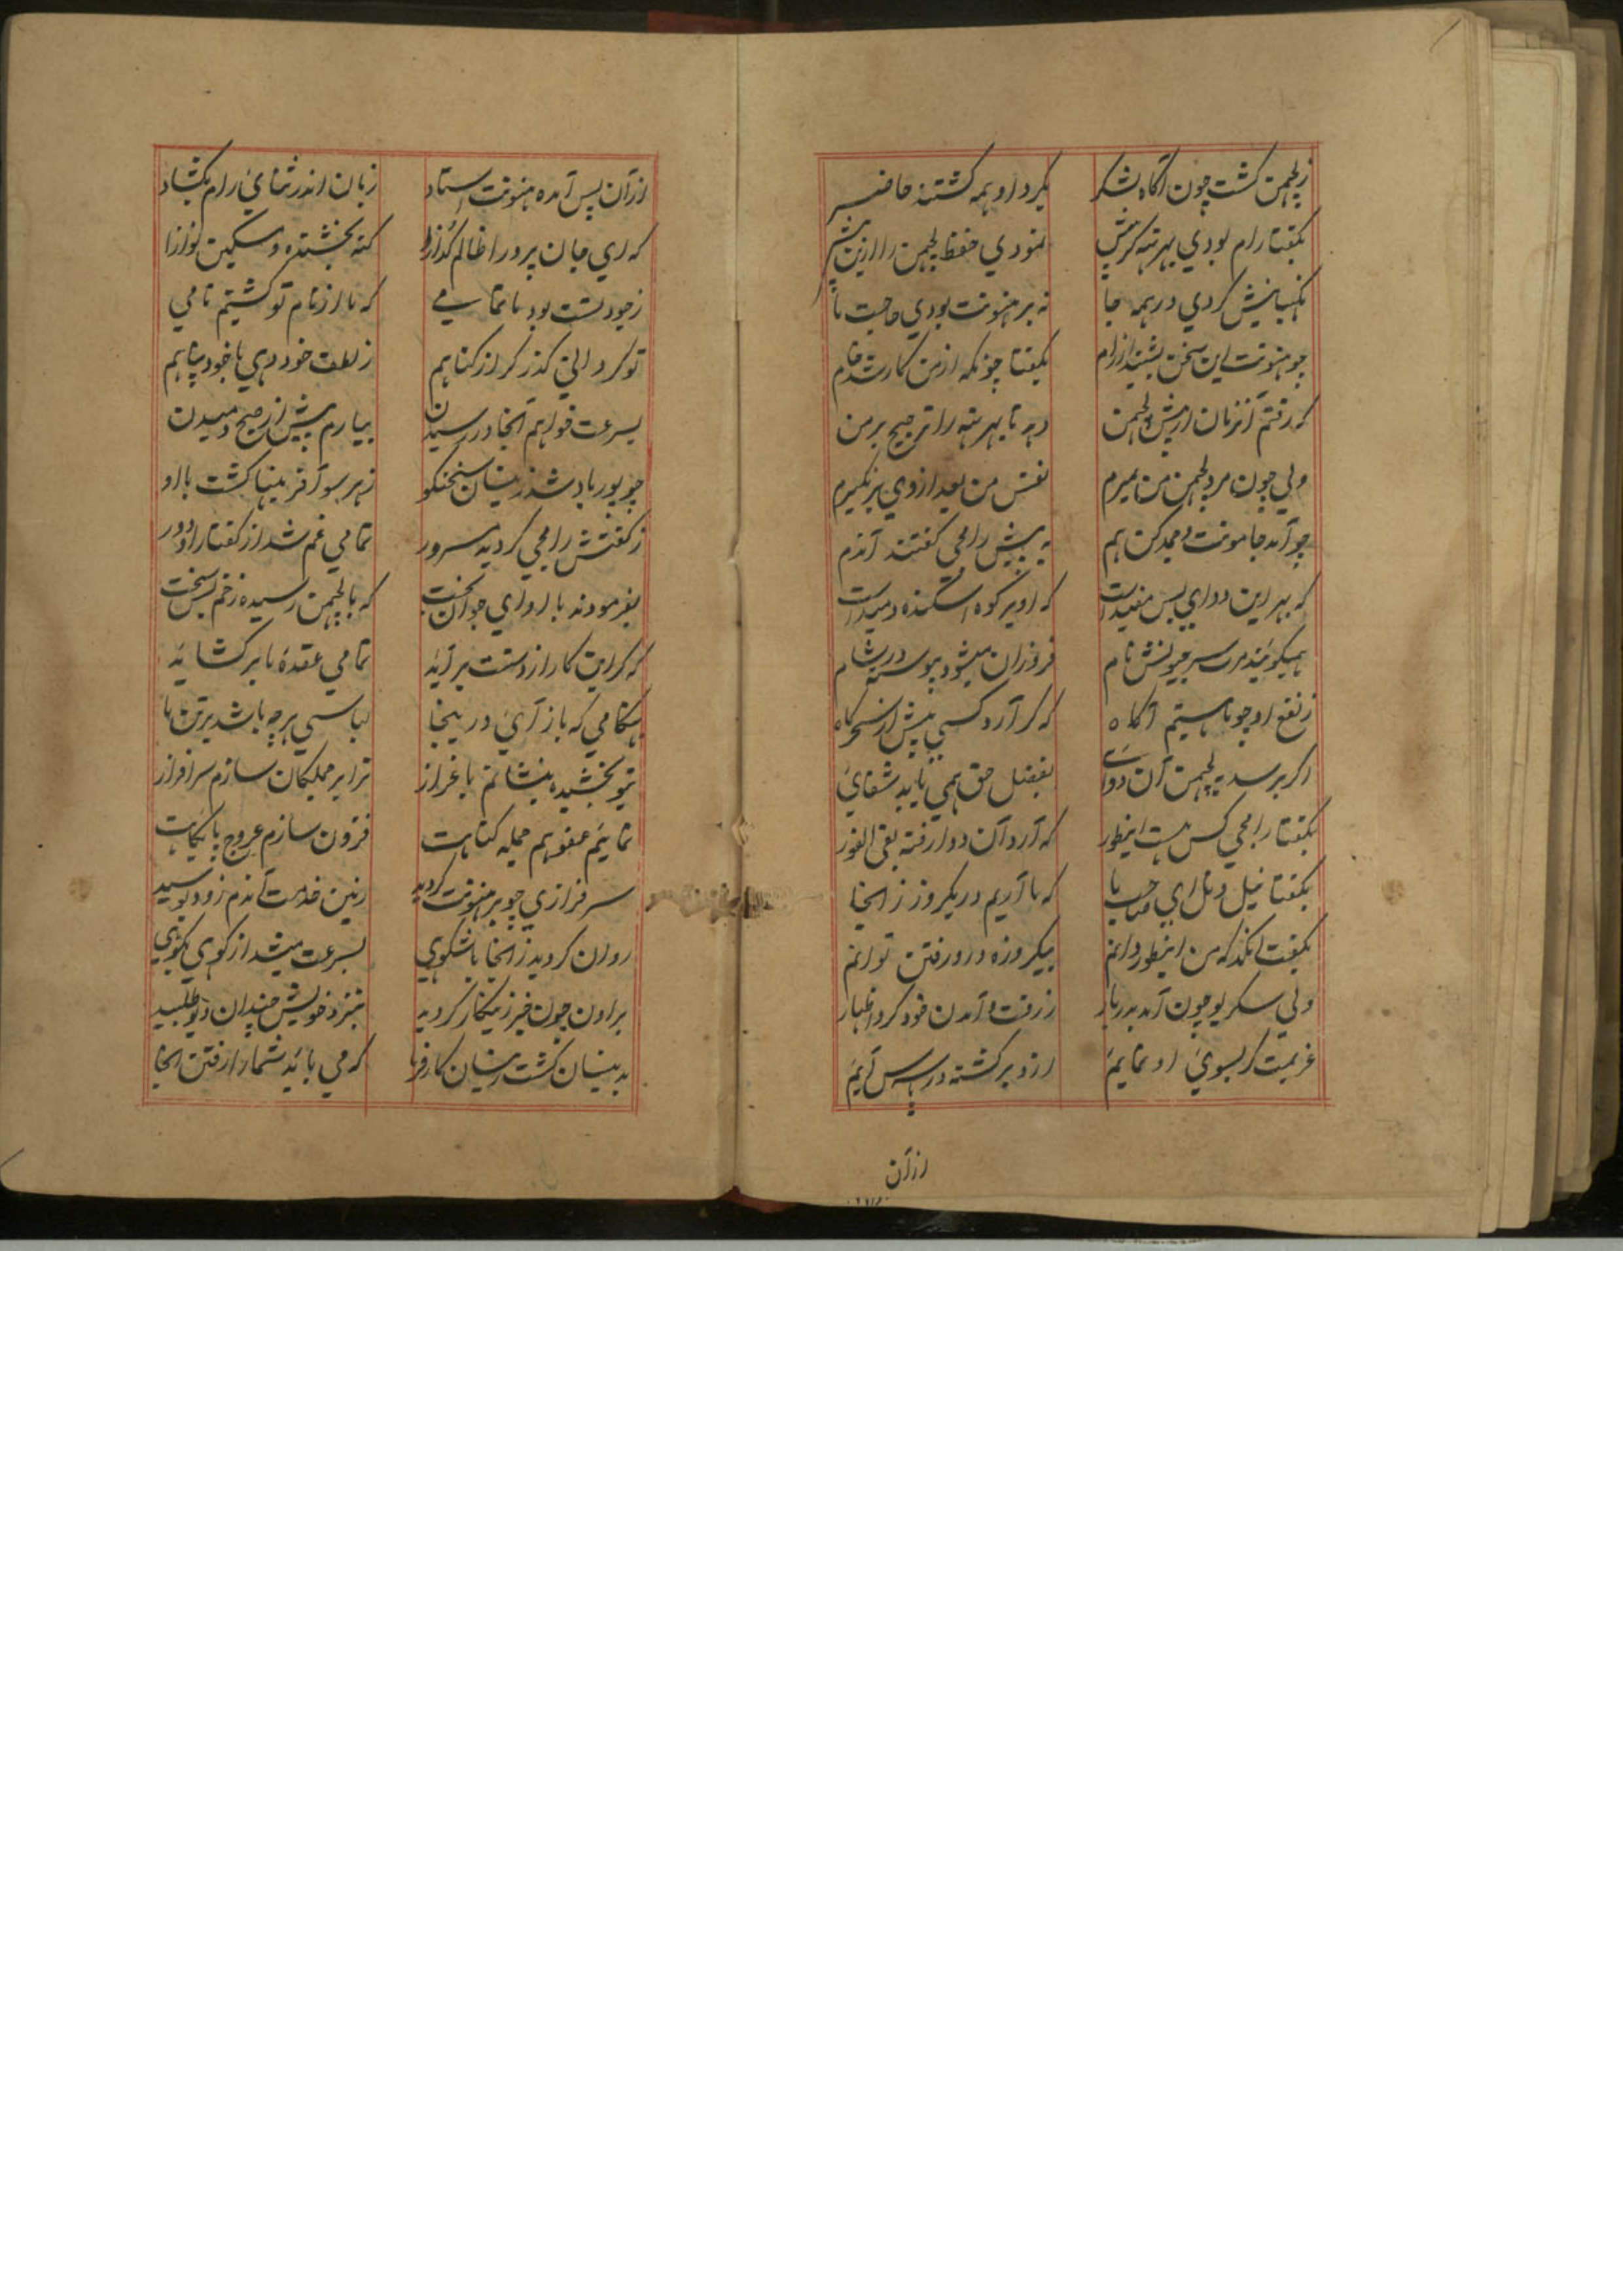 زلچمن گشت چون آگاه لشکر بگرد او همه گشتند حاضر
بگفتا رام بودی بهرتهه گر پیش نمودی حفظ لچمن را ازین بیش
نگهبانیش کردی در همه جا نه بر هنونت بودی حاجت ما
چو هنونت این سخن بشنید از رام بگفتا چونکه از من کار شد خام
که رفتم آنزمان از پیش لچمن دهد تا بهرتهه را ترجیح بر من
ولی چون مرد لچمن من نمیرم نفس من بعد ازوی بر نگیرم
چو آمد جامونت و بهبیکن هم به پیش رامجی گفتند آندم
که بهر این دوای بس مفید است که او بر کوه اسکنده دمید است
همیگویند مرت سرجیونش نام فروزان میشود پیوسته در شام
ز نفع او چو ما هستیم آگاه که گر آرد کسی پیش از سحرگاه
اگر برسد به لچمن آن دوای بفضل حق همی یابد شفای
بگفتا رامجی کس هست اینطور که آرد آن دوا رفته بفی الفور
بگفتا نیل و نل ای صاحب ما که ما آریم در یکروز ز انجا
بگفت انگد که من اینطور دانم بیکروزه درو رفتن توانم
ولی سگریو چون آمد بدربار ز رفت و آمدن خود کرد اظهار
عزیمت گر بسوی او نمایم ازو برگشته در سه پاس آیم
ازآن
ازآن پس آمده هنونت استاد زبان اندر ثنای رام بگشاد
که ای جان پرور ظالم گدازا گنه بخشنده و مسکین نوازا
ز جود تست بود ما تمامی که ما از نام تو گشتیم نامی
تو گردانی گذر گر از گناهم ز لطف خود دهی با خود پناهم
بسرعت خواهم آنجا در رسیدن بیارم پیش از صبح دمیدن
چو پور باد شد زینسان سخنگو ز هر سو آفرینها گشت با او
ز گفتش رامجی گردید مسرور تمامی غم شد از گفتار او دور
بفرمودند با او ای جوانبخت که با لچمن رسیده زخم بس سخت
که گر این کار از دستت برآید تمامی عقدهٔ ما بر گشاید
هنگامی که باز آی در اینجا لباسی هر چه باشد بر تن ما
بتو بخشیده بنشانم با عزاز ترا بر جملگان سازم سرافراز
نمایم عفو هم جمله گناهت فزون سازم عروج پایگاهت
سرفرازی چو بر هنونت گردید زمین خدمت آندم زود بوسید
روان گردید ز انجا با شکوهی بسرعت میشد از کوهی بکوهی
براون چون خبر زینکار گردید بنزد خویش چندان دیو طلبید
بدینسان گشت زینسان کارفرما که می باید شما را رفتن آنجا